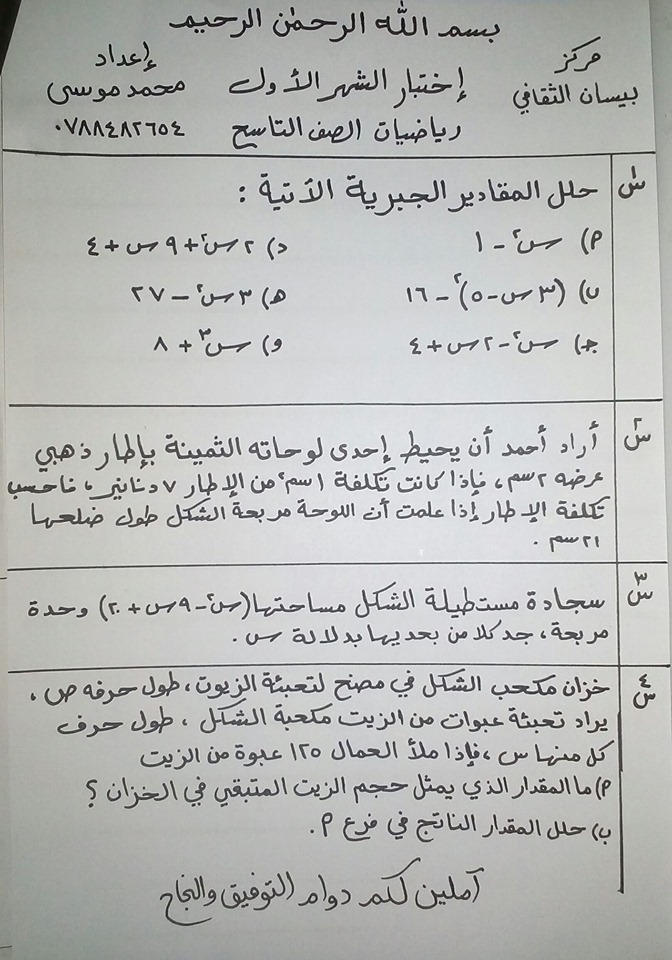 بسم الله الرحمن الرحيم
مركز
بيسان الثقافي
إختبار الشهر الأول
رياضيات الصف التاسع
إعداد
محمد موسى
٠٧٨٨٤٨٢٦٥٤
س١ حلل المقادير الجبرية الآتية :
أ) س² - ١
د) ٢س² + ٩س + ٤
ب) (٣س - ٥)² - ١٦
هـ) ٣س² - ٢٧
جـ) س² - ٢س + ٤
و) س³ + ٨
س٢ أراد أحمد أن يحيط إحدى لوحاته الثمينة بإطار ذهبي
عرضه ٢سم، فإذا كانت تكلفة ١سم² من الإطار ٧ دنانير، فاحسب
تكلفة الإطار إذا علمت أن اللوحة مربعة الشكل طول ضلعها
٢١سم .
س٣ سجادة مستطيلة الشكل مساحتها (س² - ٩س + ٢٠) وحدة
مربعة، جد كلا من بعديها بدلالة س .
س٤ خزان مكعب الشكل في مصنع لتعبئة الزيوت، طول حرفه ص،
يراد تعبئة عبوات من الزيت مكعبة الشكل، طول حرف
كل منها س، فإذا ملأ العمال ١٢٥ عبوة من الزيت
أ) ما المقدار الذي يمثل حجم الزيت المتبقي في الخزان ؟
ب) حلل المقدار الناتج في فرع أ.
آملين لكم دوام التوفيق والنجاح